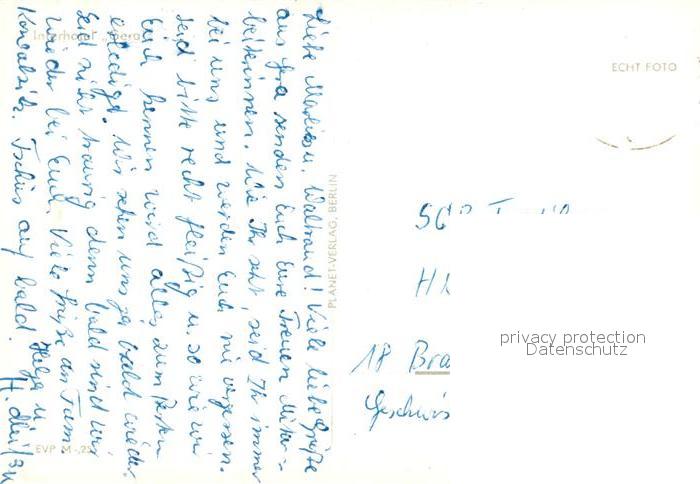 Interhotel „Gera“
Liebe Marlies u. Waltraud! Viele liebe Grüße
aus Gera senden Euch Eure Treuen Mitar-
beiterinnen. Wie Ihr seht, seid Ihr immer
bei uns und werden Euch nie vergessen.
Seid bitte recht fleißig u. so wie wir
Euch kennen wird alles zum Besten
erledigt. Wir sehen uns ja bald wieder.
Seid nicht traurig denn bald sind wir
wieder bei Euch. Viele Grüße an Fam.
Tschüs auf bald. Helga u.
EVP M -,25
PLANET-VERLAG, BERLIN
ECHT FOTO
18 Bra
Geschwis
privacy protection
Datenschutz